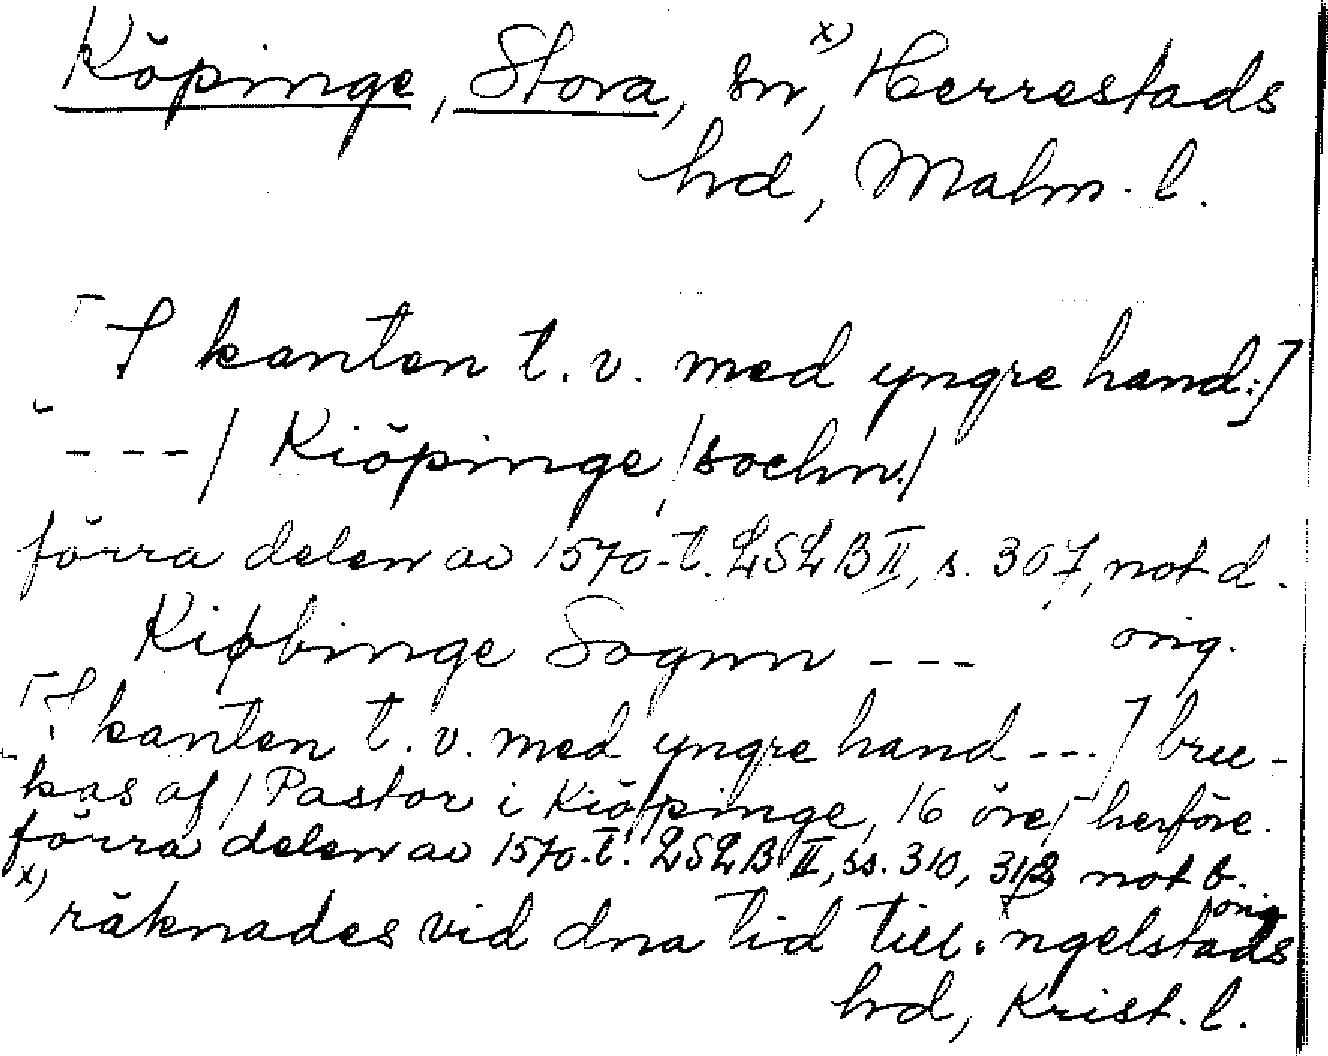 Köpinge, Stora, sn,ˣ⁾ Herrestads
hd, Malm. l.
[I kanten t. v. med yngre hand:]
- - - / Kiöpinge /sochn./
förra delen av 1570-t. LSLB II, s. 307, not d.
orig.
Kiøbinge Sognn - - -
[I kanten t. v. med yngre hand - - -] bru-
kas af / Pastor i Kiöpinge, 16 öre/ herföre.
förra delen av 1570-t. LSLB II, ss. 310, 312 not b.
orig.
x) räknades vid dna tid till Ingelstads
hd, Krist. l.